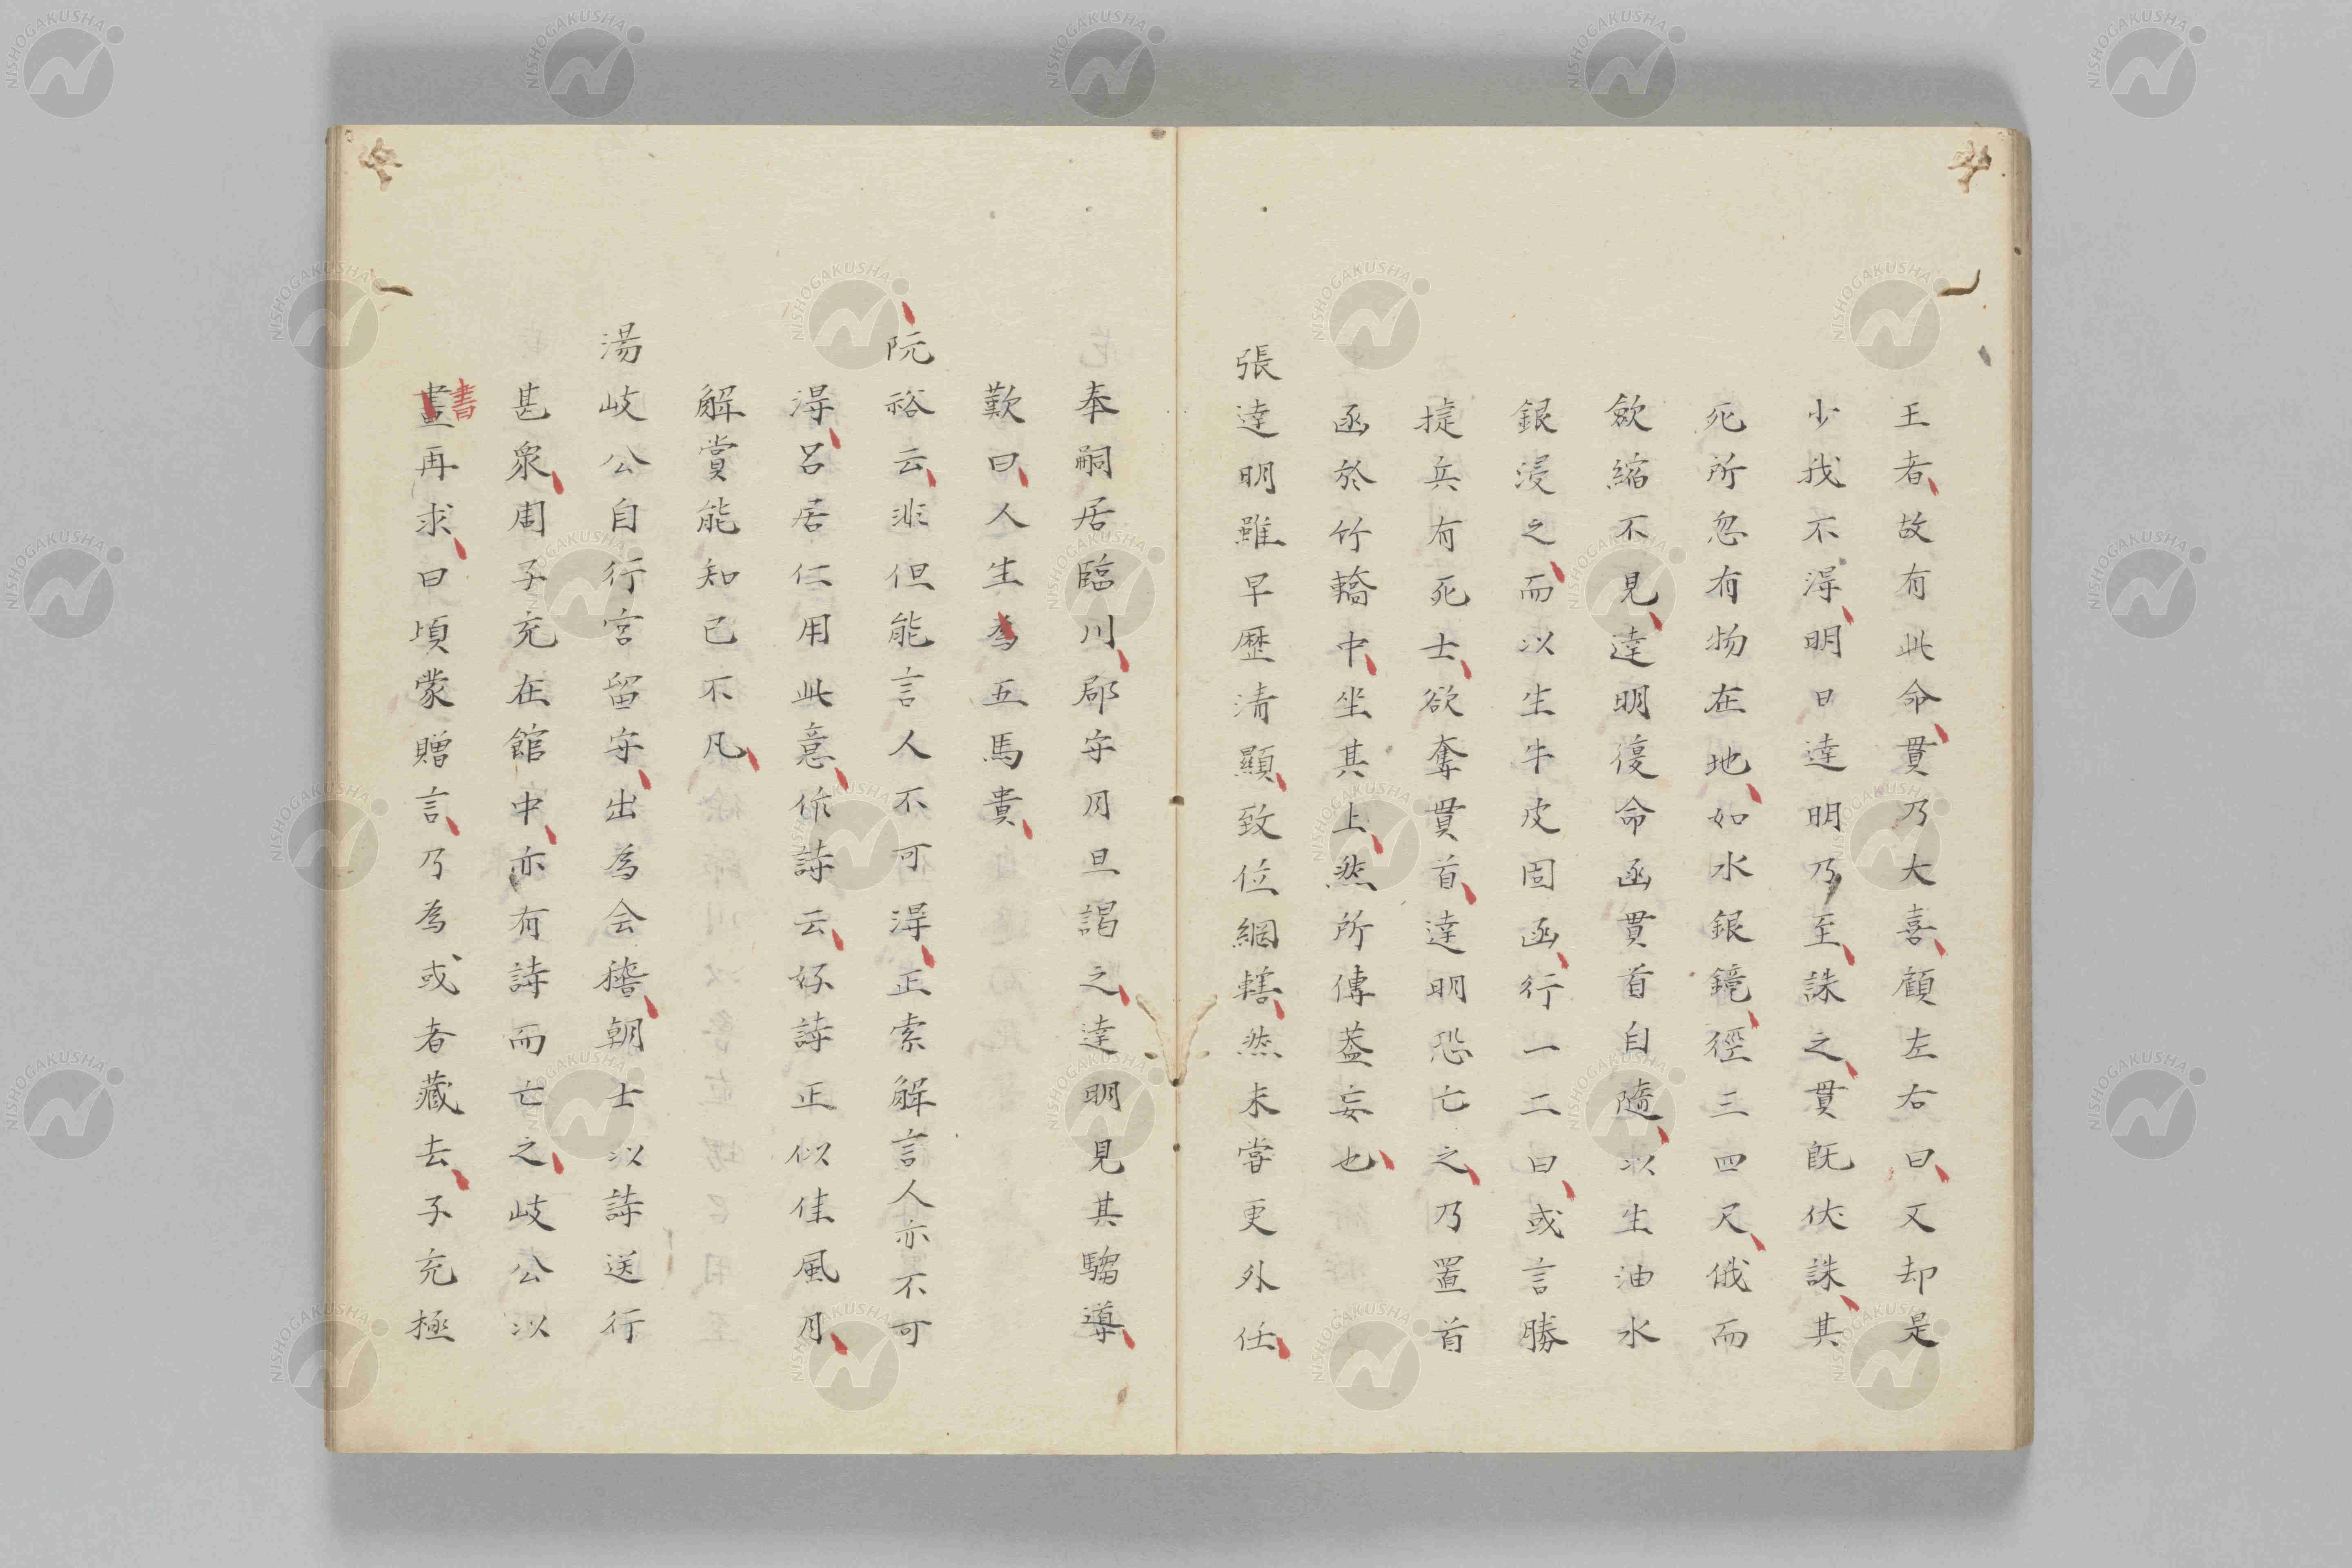 王者故有此命貫乃大喜顧左右曰又却是
少我不淂明日達明乃至誅之貫既伏誅其
死所忽有物在地如水銀鏡徑三四尺俄而
斂縮不見達明復命函貫首自隨以生油水
銀浸之而以生牛皮固函行一二日或言勝
㨗兵有死士欲奪貫首達明恐亡之乃置首
函於竹轎中坐其上然所傳蓋妄也
張達明雖早歷清顯致位綱轄然未嘗更外任
奉嗣居臨川郡守月旦謁之達明見其騶導
歎曰人生為五馬貴
阮裕云非但能言人不可淂正索解言人亦不可
淂呂居仁用此意作詩云好詩正似佳風月
解賞能知已不凡
湯岐公自行宮留守出為会稽朝士以詩送行
甚衆周子充在館中亦有詩而亡之岐公以
畫再求曰頃蒙贈言乃為或者藏去子充極
書
NISHOGAKUSHA